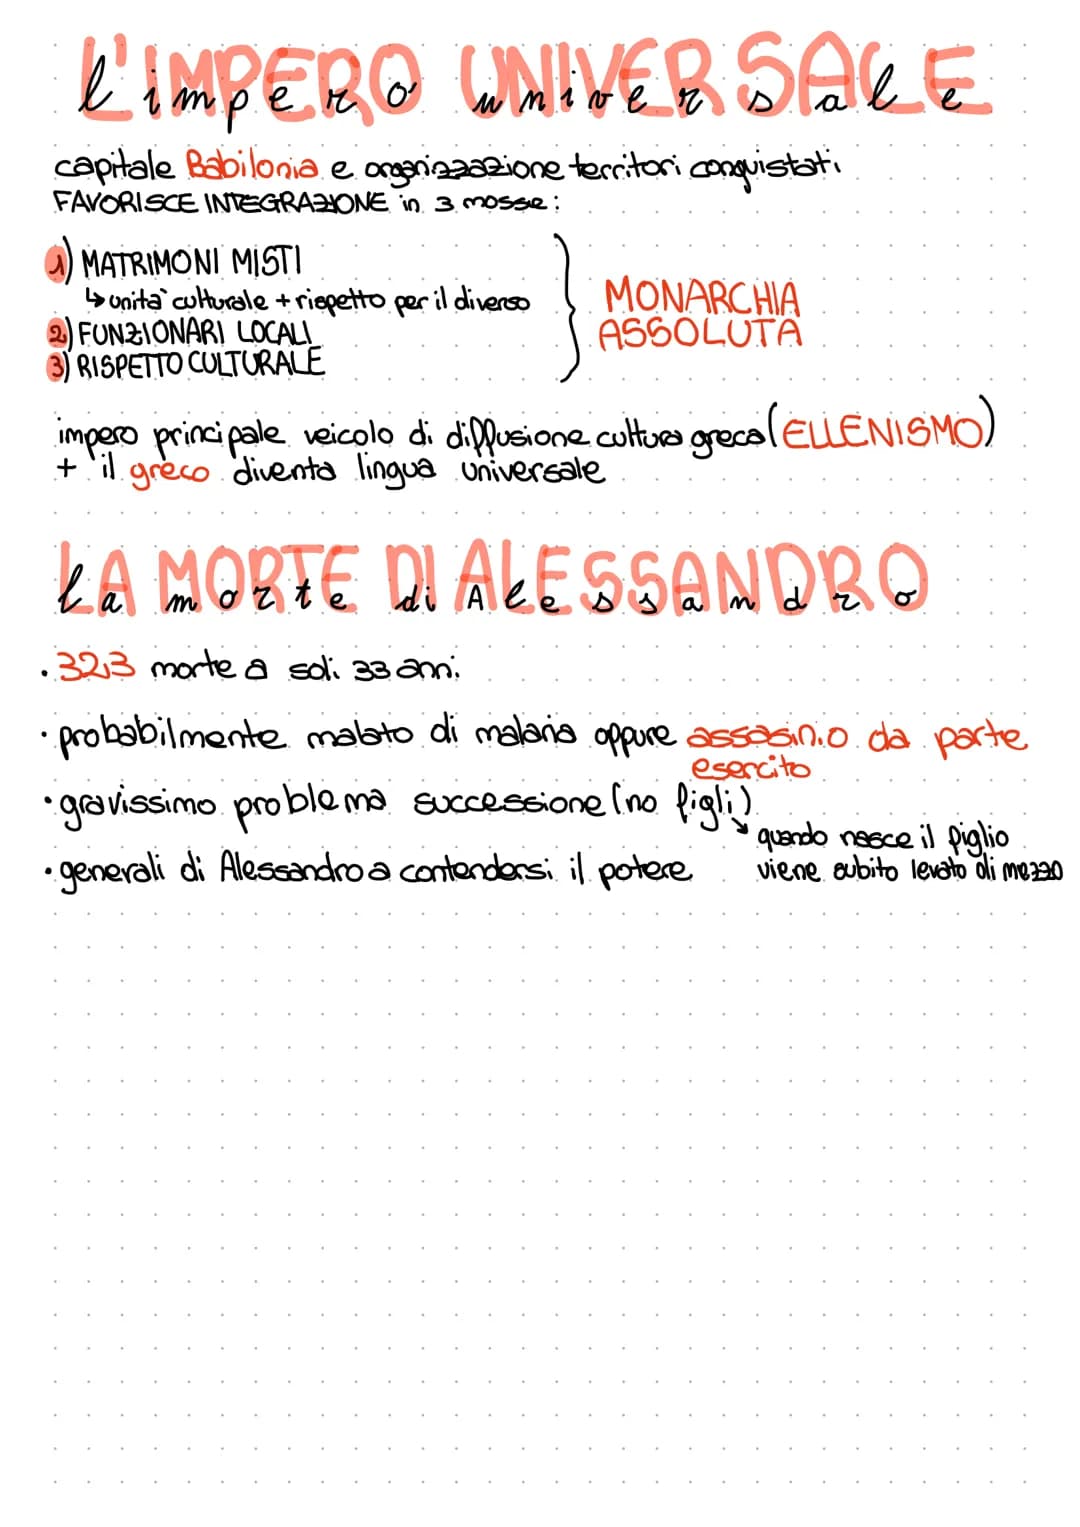 L'IMPERO UNIVERSALE
l'impero universale
capitale Babilonia e organizzazione territori conquistati
FAVORISCE INTEGRAZIONE in 3 mosse:
1) MATRIMONI MISTI
↳ unita` culturale + rispetto per il diverso
2) FUNZIONARI LOCALI
3) RISPETTO CULTURALE
MONARCHIA
ASSOLUTA
impero principale veicolo di diffusione cultura greca (ELLENISMO)
+ il greco diventa lingua universale
LA MORTE DI ALESSANDRO
la morte di Alessandro
• 323 morte a soli 33 anni
• probabilmente malato di malaria oppure assasinio da parte
esercito
• gravissimo problema successione (no figli)
↘ quando nasce il figlio
viene subito levato di mezzo
• generali di Alessandro a contendersi il potere